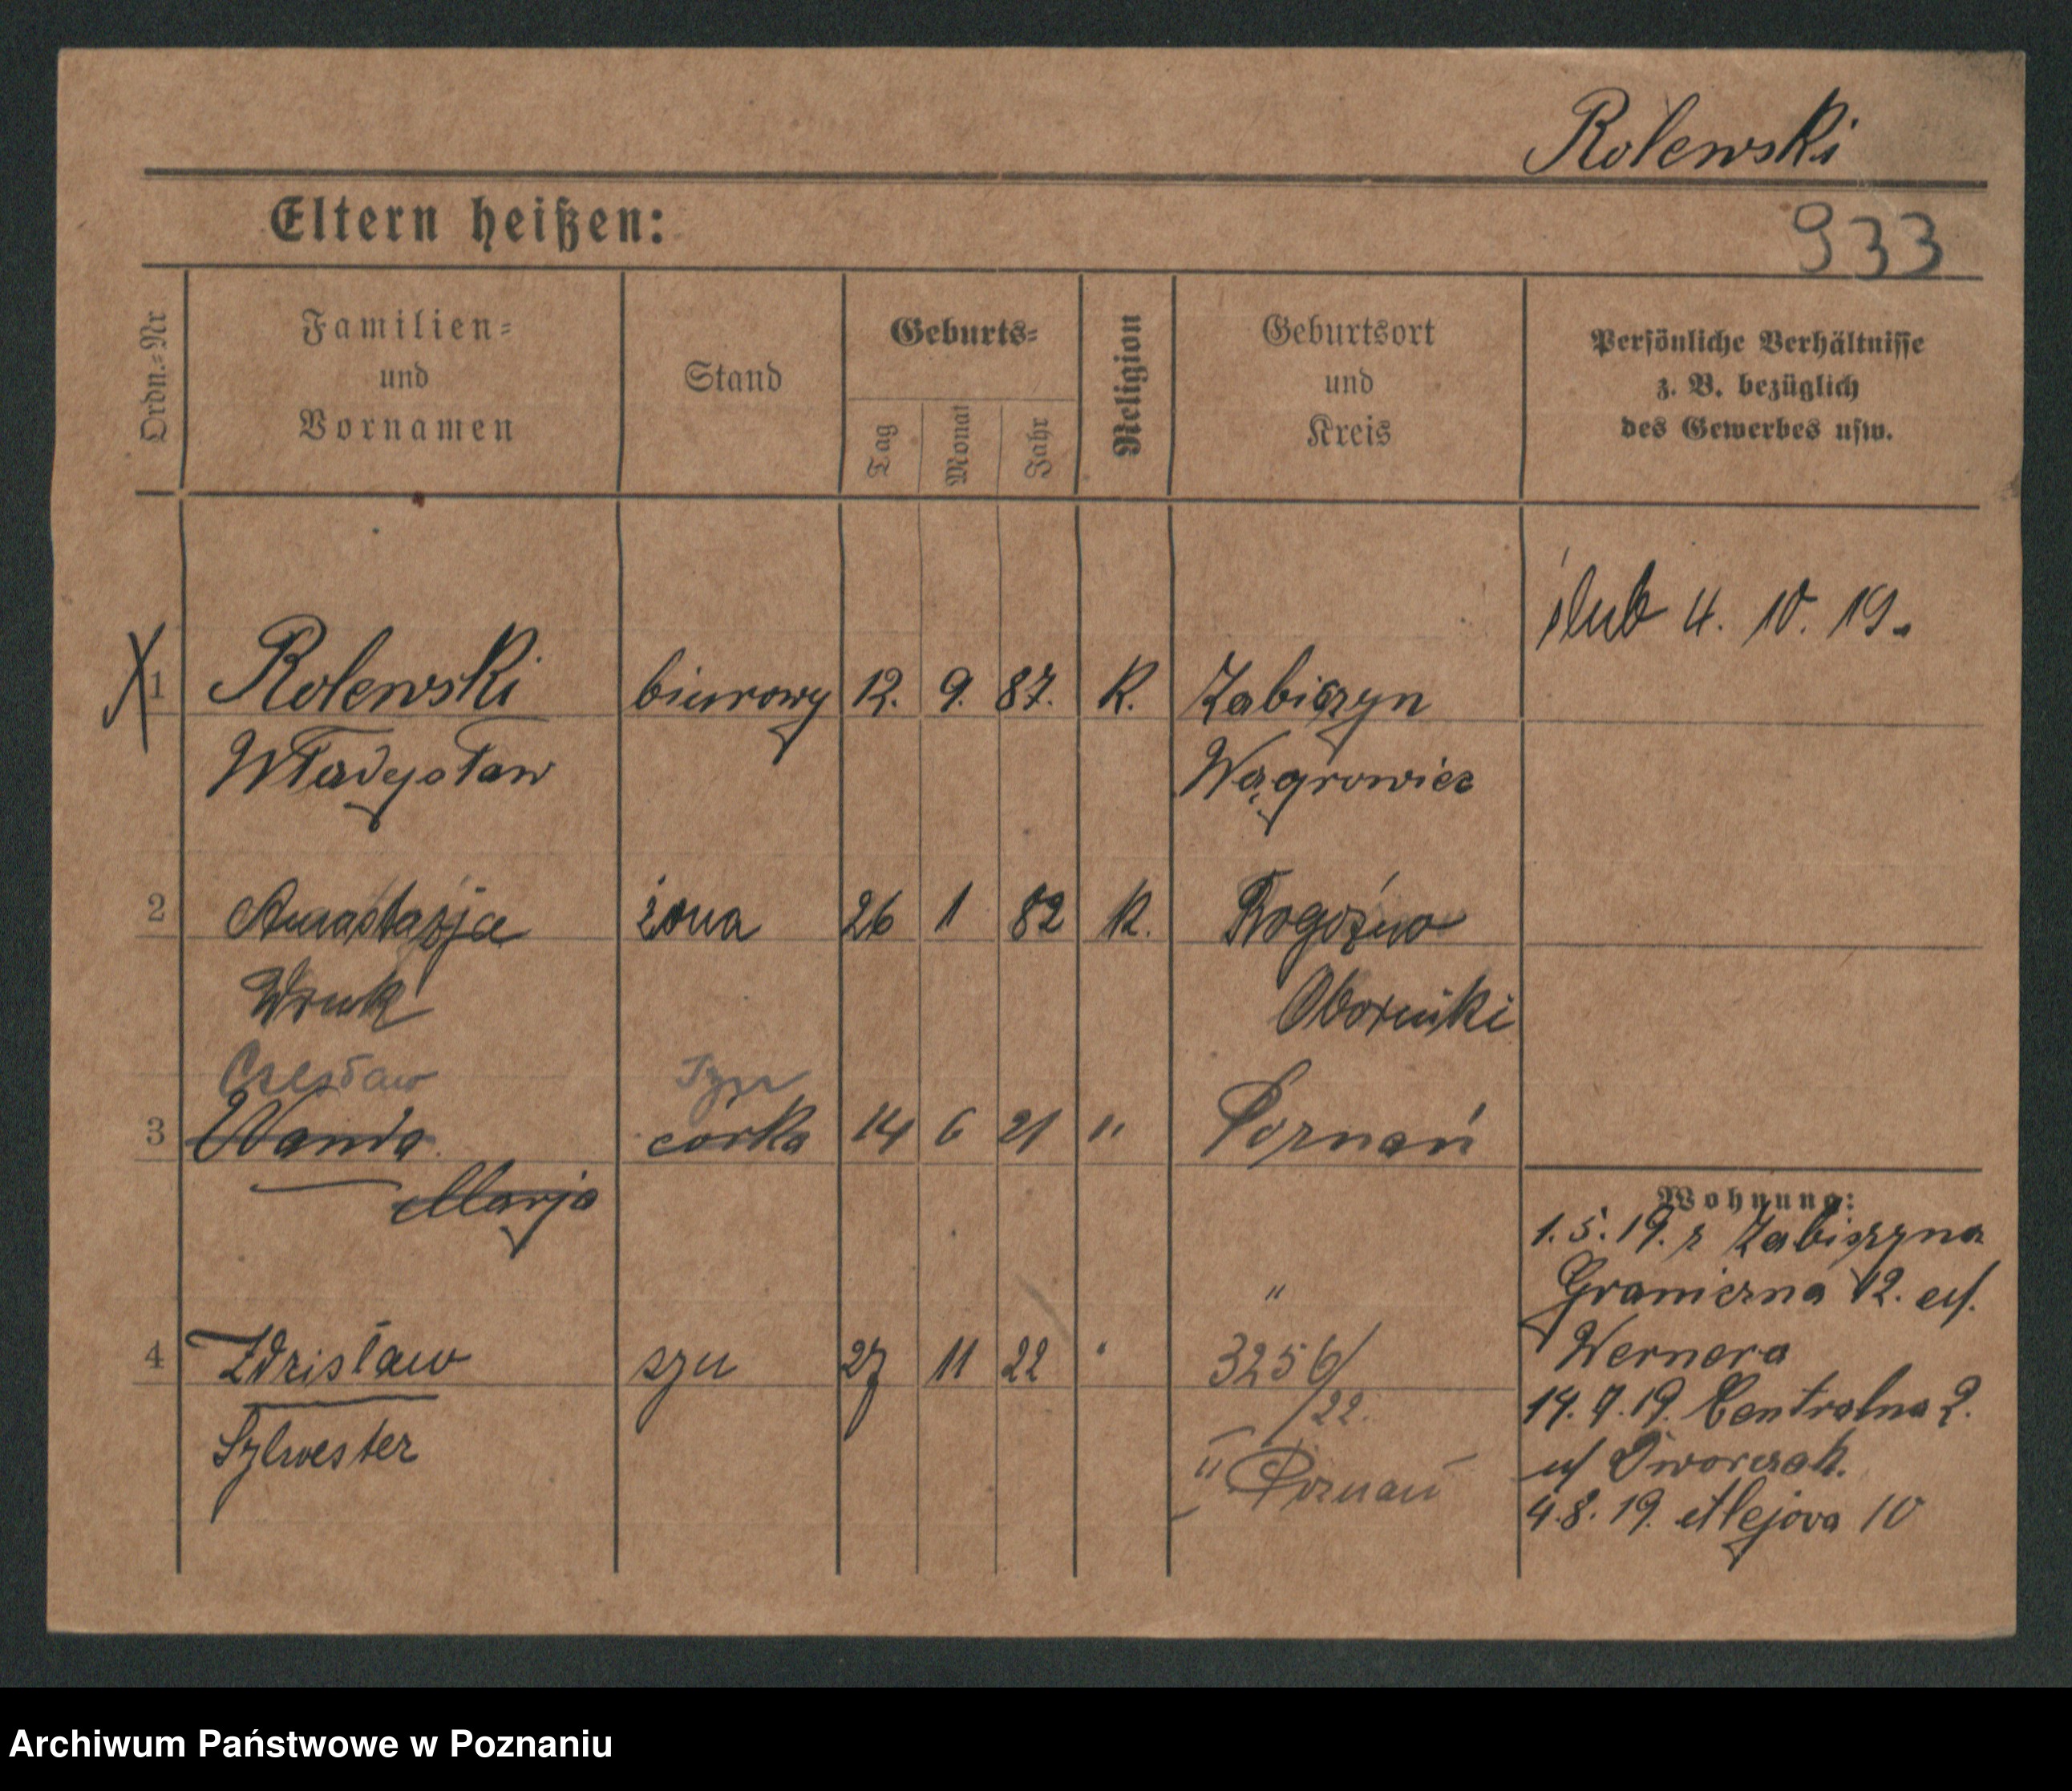 Rolewski
Eltern heißen:
933
Ordn.=Nr
Familien=
und
Vornamen
Stand
Geburts=
Tag
Monat
Jahr
Religion
Geburtsort
und
Kreis
Persönliche Verhältnisse
z. B. bezüglich
des Gewerbes usw.
ślub 4. 10. 19.
X 1 Rolewski biurowy 12. 9. 87. K. Żabiczyn
Władysław Wągrowiec
2 Anastazja żona 26 1 82 K. Rogoźno
Wruk Oborniki
Czesław Syn
3 Wanda córka 14 6 21 " Poznań
Marja
"
4 Zdzisław syn 27 11 22 " 3256/
/22.
Sylwester " Poznań
Wohnung:
1.5.19. z Żabiczyna
Graniczna 12. u/.
Wernera
14.7.19. Centralna 2.
u/ Dworczak.
4.8.19. Alejova 10
Archiwum Państwowe w Poznaniu